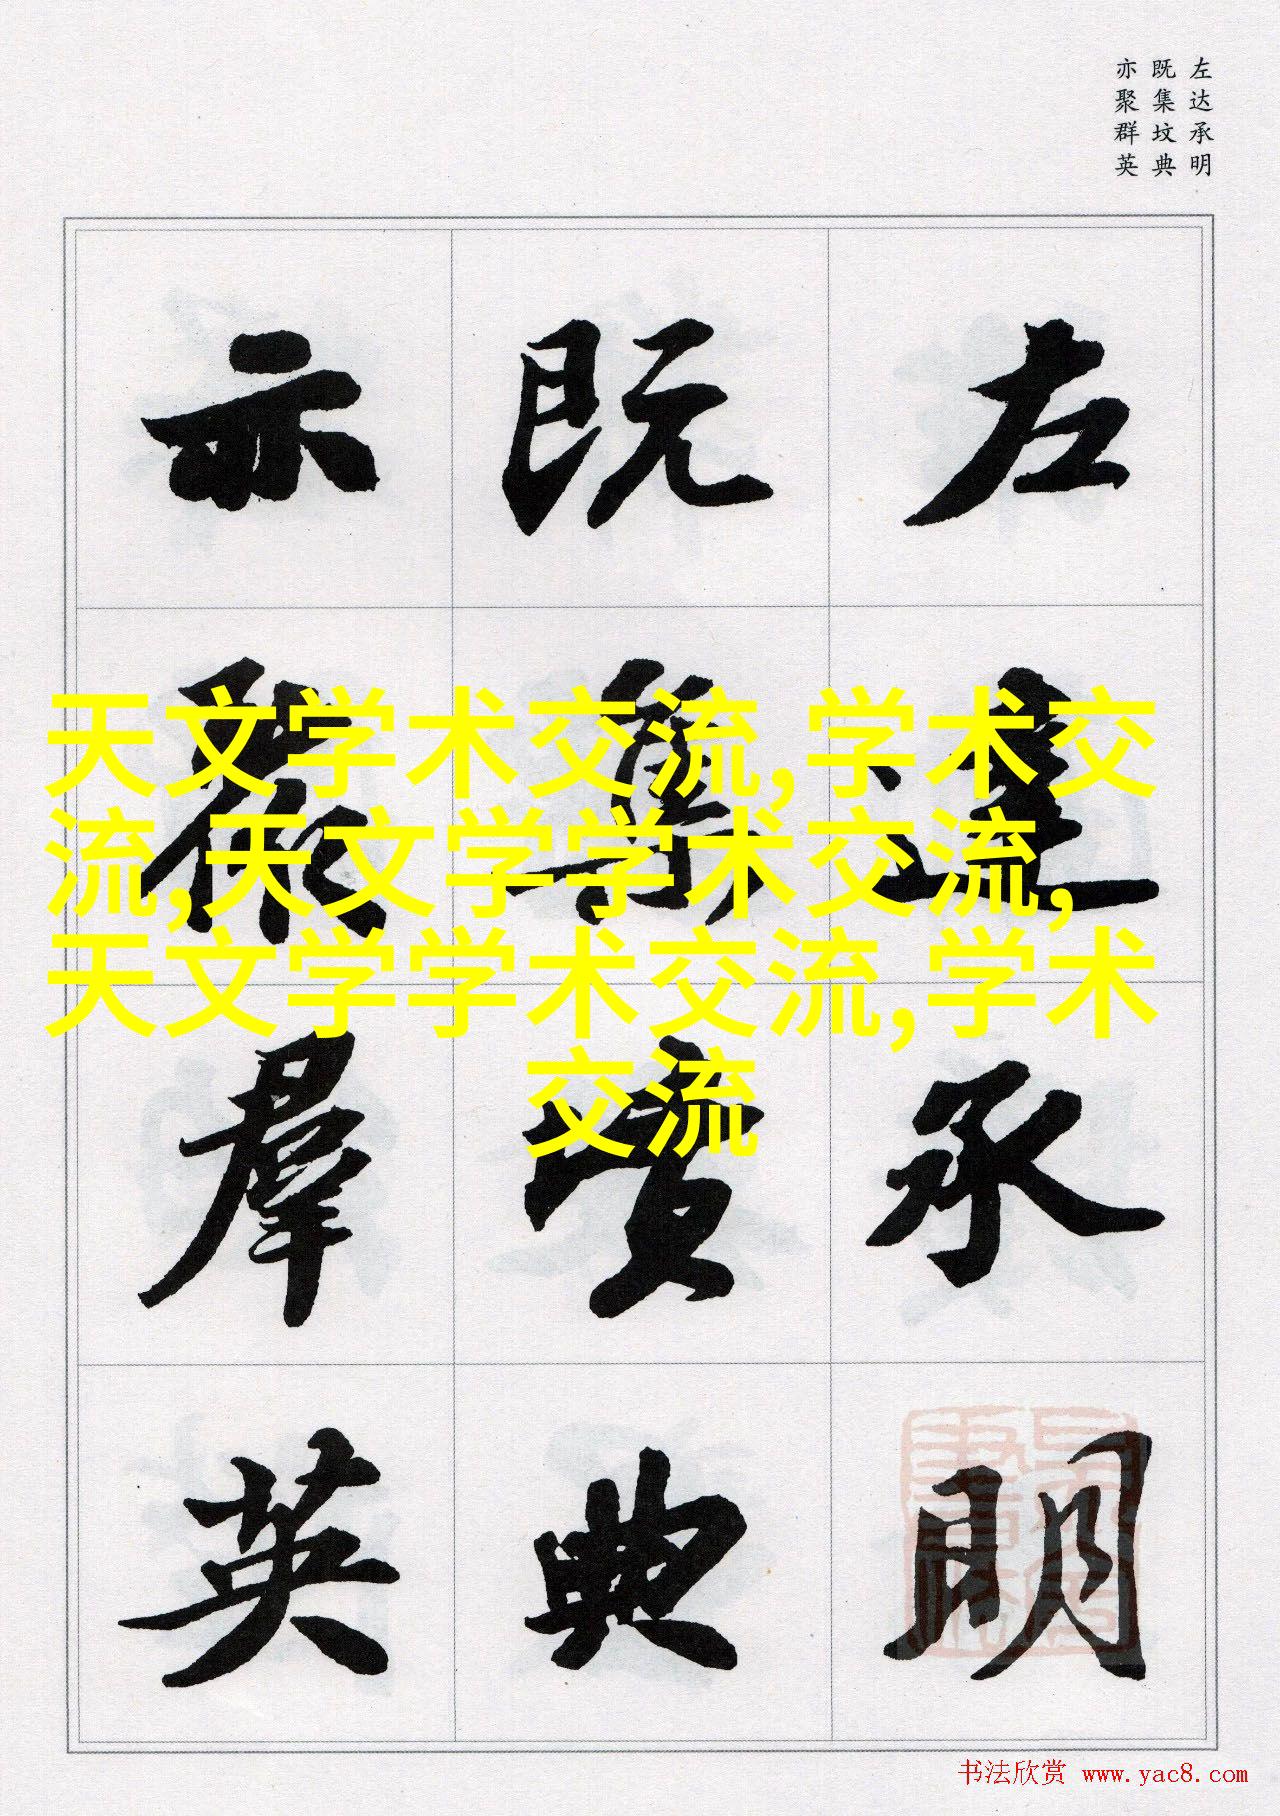 左达承明
既集坟典
亦聚群英
左達承明
既集墳典
亦聚羣英
天文学术交流,学术交
流,天文学学术交流,
天文学学术交流,学术
交流
书法欣赏 www.yac8.com